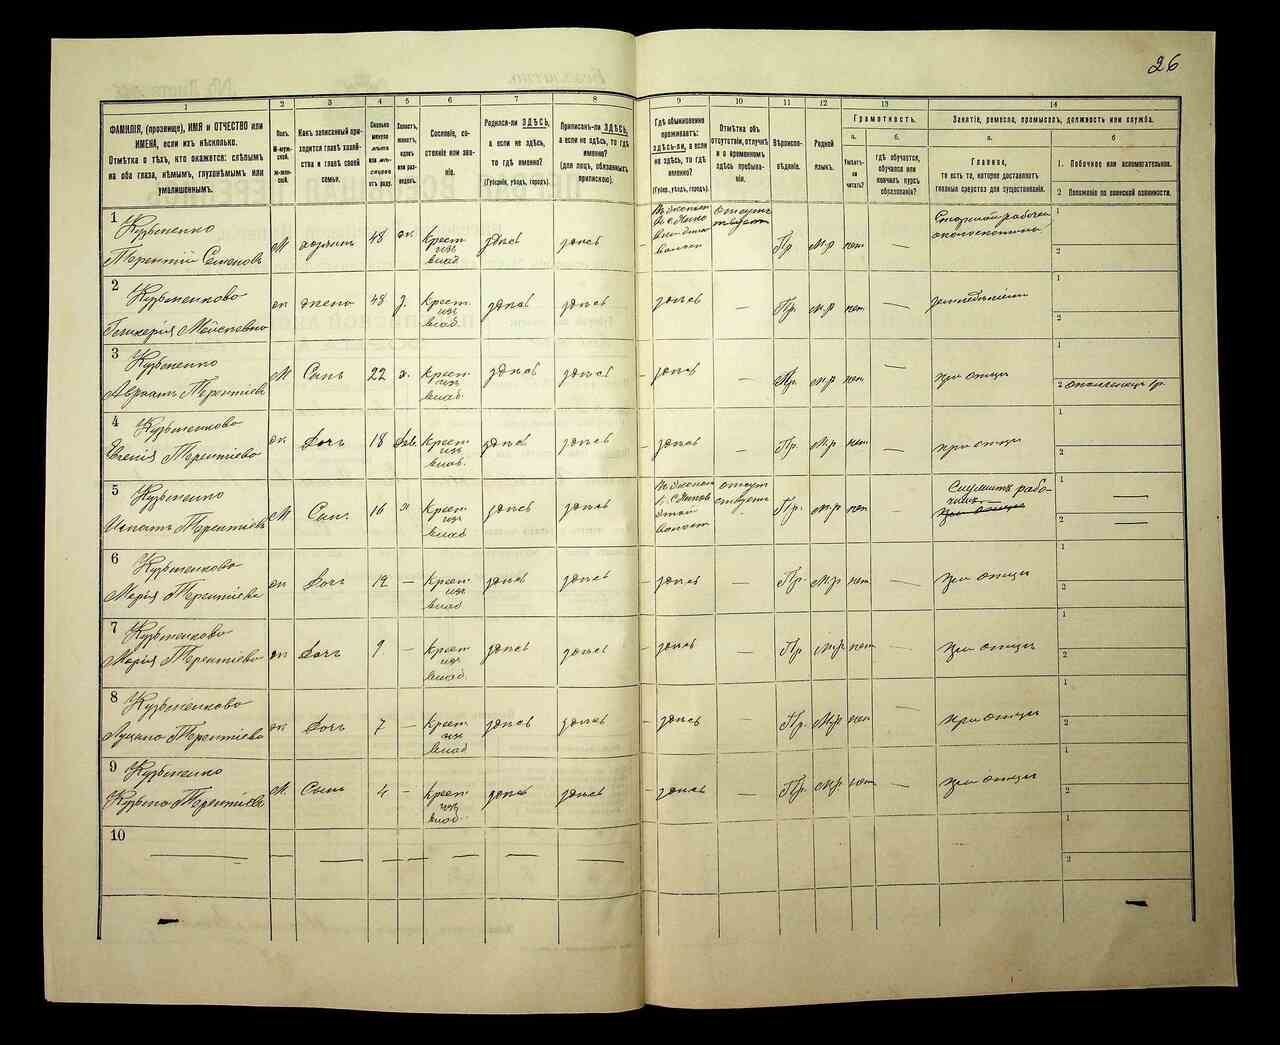 26
1 2 3 4 5 6 7 8 9 10 11 12 13 14
ФАМИЛІЯ, (прозвище), ИМЯ и ОТЧЕСТВО или
ИМЕНА, если ихъ нѣсколько.
Отмѣтка о тѣхъ, кто окажется: слѣпымъ
на оба глаза, нѣмымъ, глухонѣмымъ или
умалишеннымъ.
Полъ.
М-муж-
ской.
Ж-жен-
скій.
Какъ записанный при-
ходится главѣ хозяй-
ства и главѣ своей
семьи.
Сколько
минуло
лѣтъ
или мѣ-
сяцевъ
отъ роду.
Холостъ,
женатъ,
вдовъ
или раз-
веденъ.
Сословіе, со-
стояніе или зва-
ніе.
Родился-ли ЗДѢСЬ,
а если не здѣсь,
то гдѣ именно?
(Губернія, уѣздъ, городъ).
Приписанъ-ли ЗДѢСЬ,
а если не здѣсь, то гдѣ
именно?
(для лицъ, обязанныхъ
припискою).
Гдѣ обыкновенно
проживаетъ:
ЗДѢСЬ-ли, а если
не здѣсь, то гдѣ
именно?
(Губер., уѣздъ, городъ).
Отмѣтка объ
отсутствіи, отлучкѣ
и о временномъ
здѣсь пребыва-
ніи.
Вѣроиспо-
вѣданіе.
Родной
языкъ.
Грамотность.
а.
Умѣетъ-
ли чи-
тать?
б.
гдѣ обучается,
обучался или
кончилъ курсъ
образованія?
Занятіе, ремесло, промыселъ, должность или служба.
а.
Главное,
то есть то, которое доставляетъ
главныя средства для существованія.
б
1. Побочное или вспомогательное.
2 Положеніе по воинской повинности.
1
Кузьменко
Терентій Семеновъ М хозяинъ 48 ж Крест. изъ влад. здѣсь здѣсь Пр м.р нет —
Старшій рабочій
1
2
2
Кузьменкова
Гликерія Моисеевна ж жена 48 з. Крест. изъ влад. здѣсь здѣсь здѣсь — Пр. м.р нет — земледѣліе
1
2
3
Кузьменко
Авраамъ Терентіевъ М Сынъ 22 х. Крест. изъ влад. здѣсь здѣсь здѣсь — Пр. м.р нет — при отцѣ
1
2 ополченецъ 1 р.
4
Кузьменкова
Евгенія Терентіева ж Дочь 18 дѣв. Крест. изъ влад. здѣсь здѣсь здѣсь — Пр. м.р нет — при отцѣ
1
2
5
Кузьменко
Игнатъ Терентіевъ М Сынъ 16 х Крест. изъ влад. здѣсь здѣсь Пр. м.р нет —
Служитъ рабо-
чимъ
при отцѣ
1 —
2 —
6
Кузьменкова
Марія Терентіева ж Дочь 12 — Крест. изъ влад. здѣсь здѣсь здѣсь — Пр. м.р нет — при отцѣ
1
2
7
Кузьменкова
Марія Терентіева ж Дочь 9 — Крест. изъ влад. здѣсь здѣсь здѣсь — Пр м.р нет — при отцѣ
1
2
8
Кузьменкова
Терентіева ж Дочь 7 — Крест. изъ влад. здѣсь здѣсь здѣсь — Пр. м.р нет — при отцѣ
1
2
9
Кузьменко
Кузьма Терентіевъ М. Сынъ 4 — Крест. изъ влад. здѣсь здѣсь здѣсь — Пр. м.р нет — при отцѣ
1
2
10
1
2